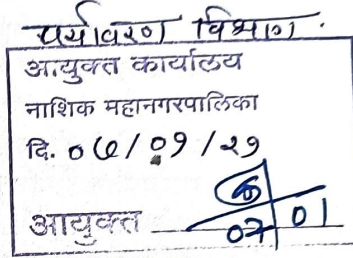 पर्यावरण विभाग.
आयुक्त कार्यालय
नाशिक महानगरपालिका
दि. ०७/०१/२१
आयुक्त
07/01